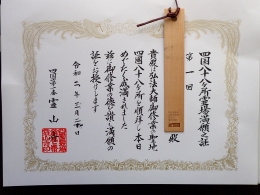 四国八十八ヶ所霊場満願之証
第一回
殿
貴殿は弘法大師御修業の聖地
四国八十八ヶ所を順拝し本日
めでたく成満されました
茲に御修業の徳を讃え満願の
証をお授けします
令和二年三月二十日
四国第一番霊山